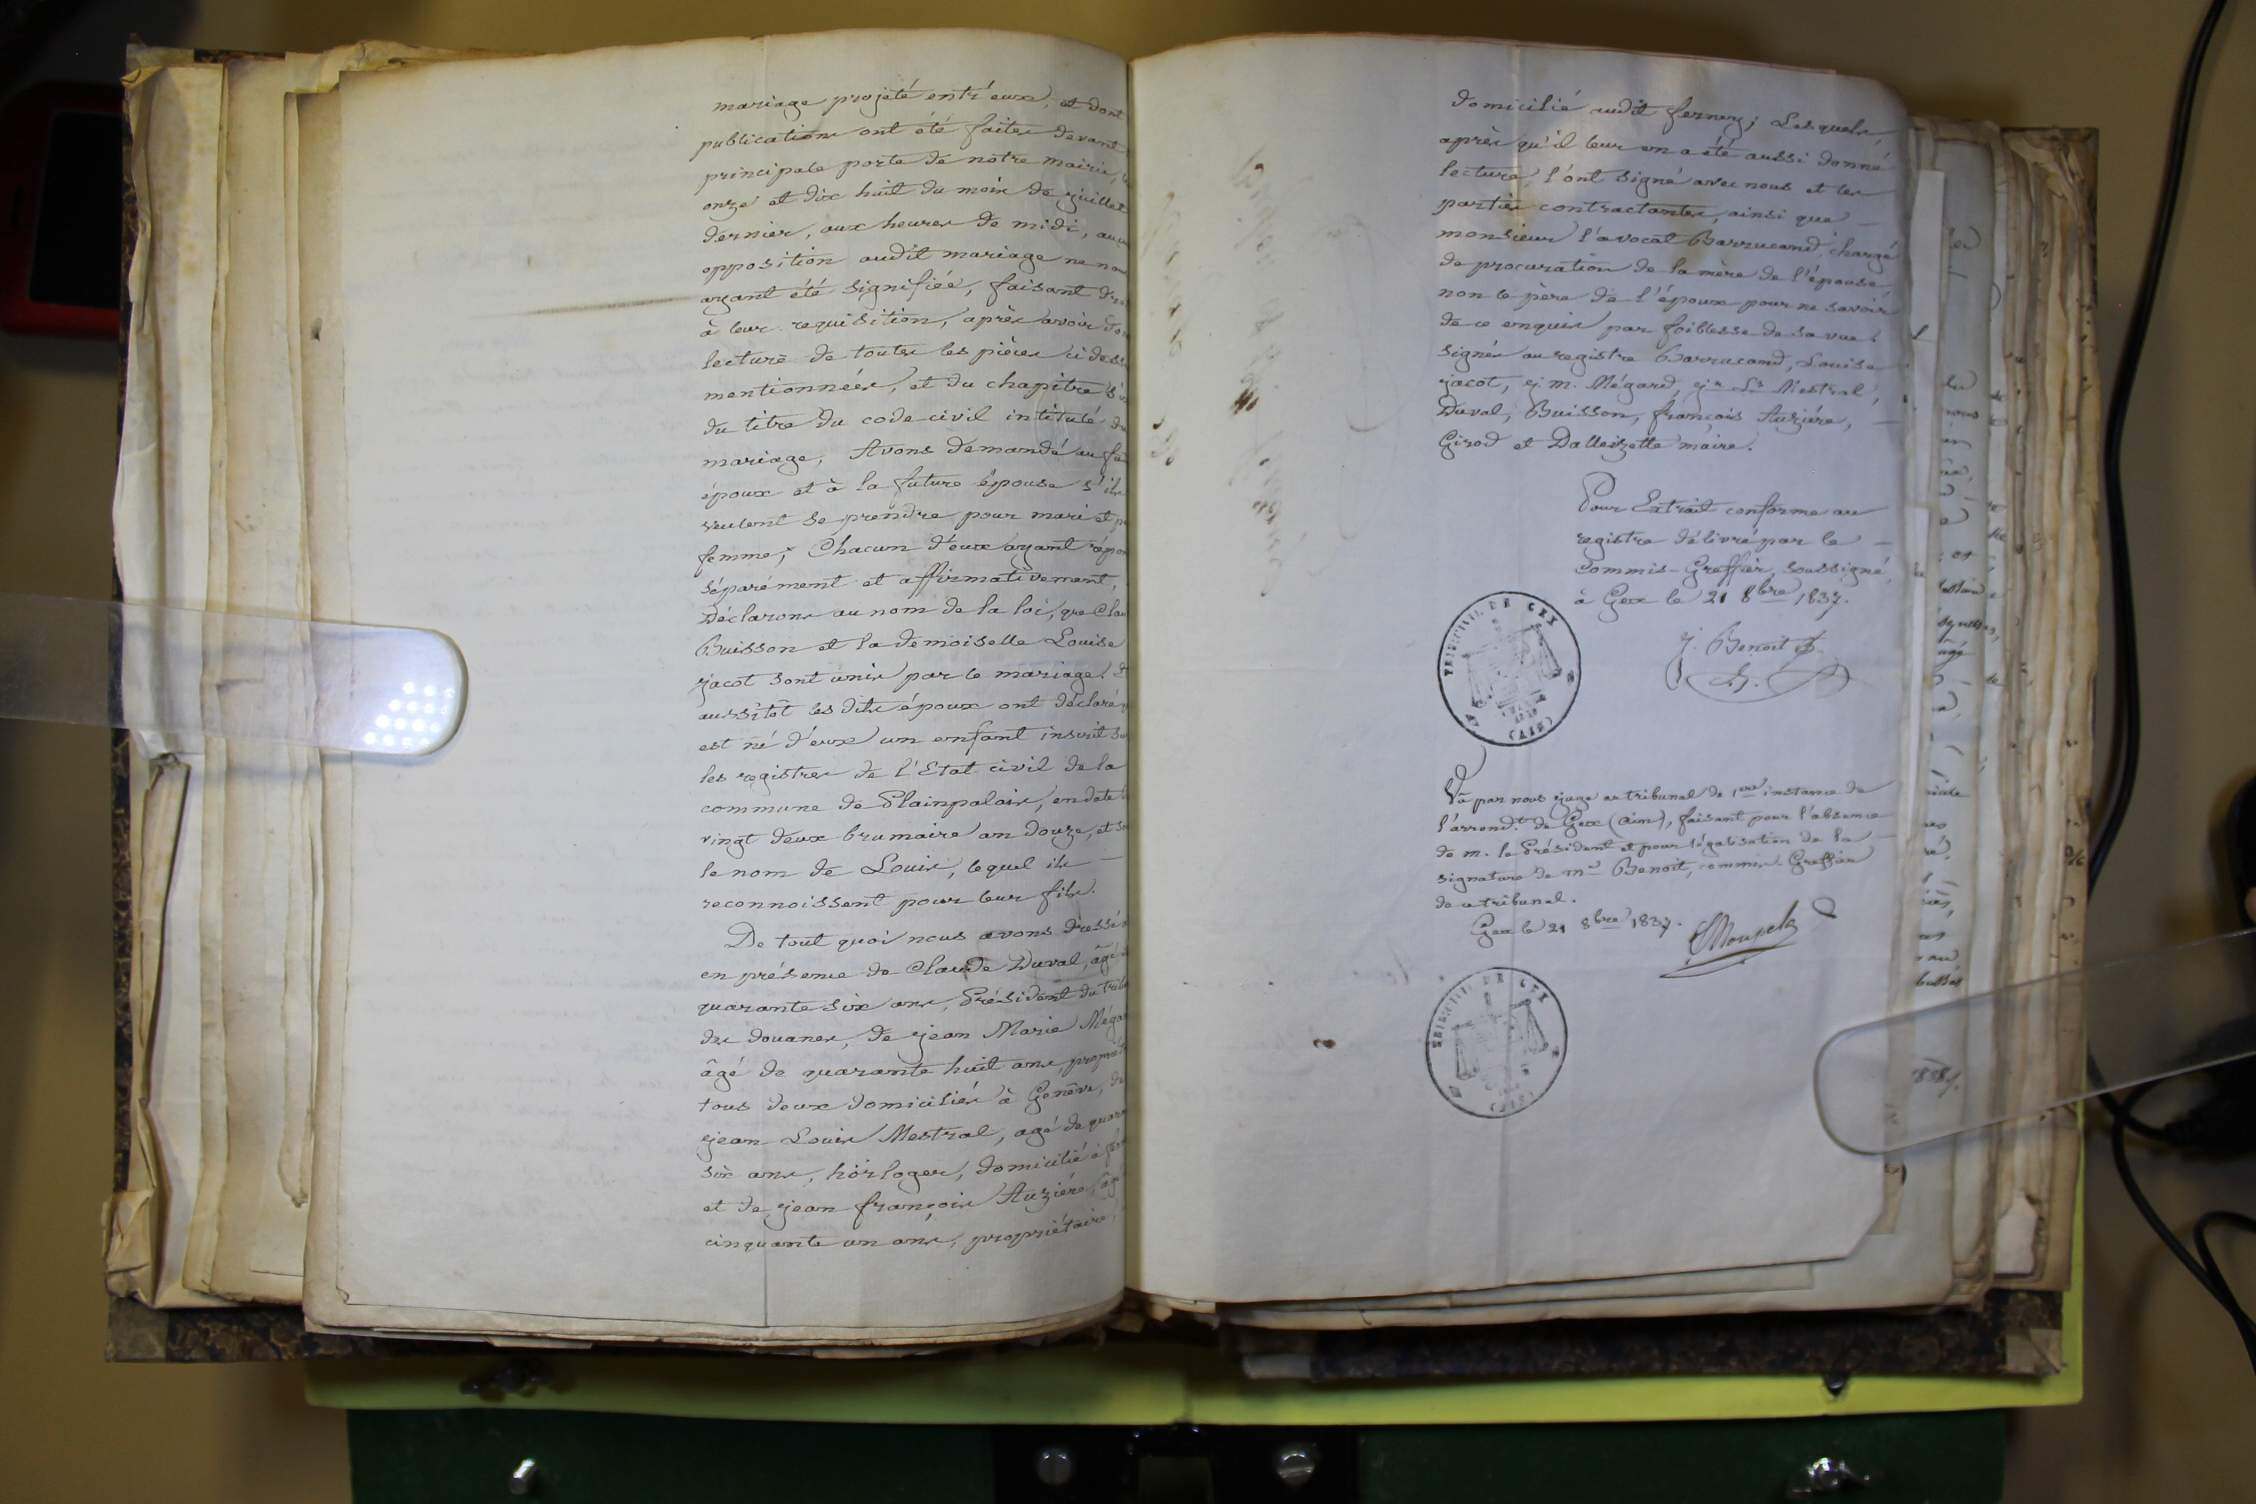 mariage projeté entr'eux, et dont
publications ont été faites devant
principale porte de notre mairie,
onze et dix huit du mois de juillet
dernier, aux heures de midi, aucu
opposition audit mariage ne nou
ayant été signifiée, faisant dro
à leur requisition, après avoir don
lecture de toutes les pièces ci dess
mentionnées, et du chapitre si
du titre du code civil intitulé du
mariage, Avons demandé au fu
époux et à la future épouse s'ils
veulent se prendre pour mari et p
femme; Chacun d'eux ayant répon
séparément et affirmativement,
Déclarons au nom de la loi, que Clau
Buisson et la demoiselle Louise
jacot sont unis par le mariage. Et
aussitôt les dits époux ont déclaré
est né d'eux un enfant inscrit su
les registres de l'Etat civil de la
commune de Plainpalais, en date
vingt deux brumaire an douze, et so
le nom de Louis, lequel ils —
reconnoissent pour leur fils.
De tout quoi nous avons dressé a
en présence de Claude Duval, âgé
quarante six ans, Président du tribu
des douanes, de jean Marie Mégar
âgé de quarante huit ans, proprié
tous deux domiciliés à Genève, de
jean Louis Mestral, agé de quara
six ans, horloger, domicilié à
et de jean françois Auzière, âgé
cinquante un ans, propriétaire,
domicilié audit ferney; Lesquels
après qu'il leur en a été aussi donné
lecture, l'ont signé avec nous et les
parties contractantes, ainsi que —
monsieur l'avocat Barrucand, chargé
de procuration de la mère de l'épouse,
non le père de l'époux pour ne savoir
de ce enquis par foiblesse de sa vue.
signés au registre Barrucand, Louise
jacot, j. m. Mégard, jn Ls Mestral,
Duval, Buisson, françois Auzière, —
Girod et Dalleizette maire.
Pour Extrait conforme au
registre délivré par le —
Commis-Greffier, soussigné,
à Gex le 21 8bre 1837.
j. Benoit
TRIBUNAL DE GEX
(AIN)
Vu par nous juge au tribunal de 1ere instance de
l'arrond.t de Gex (Ain), faisant pour l'absence
de m. le Président et pour légalisation de la —
signature de mr Benoit, commis-Greffier
de ce tribunal.
Gex le 21 8bre 1837.
TRIBUNAL DE GEX
(AIN)